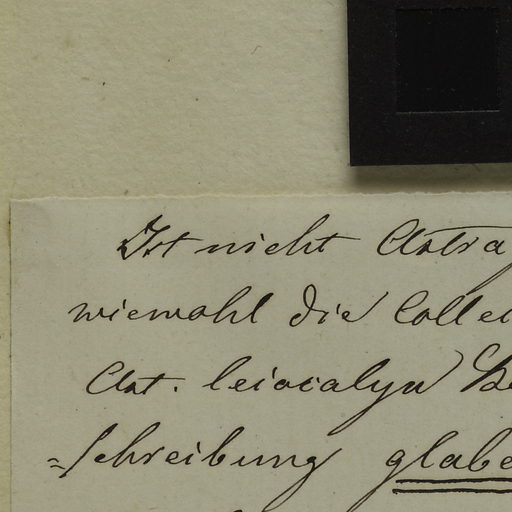 Ist nicht Astra
wiewohl die Colle
Ast. leiocalyx Be
=schreibung glabe